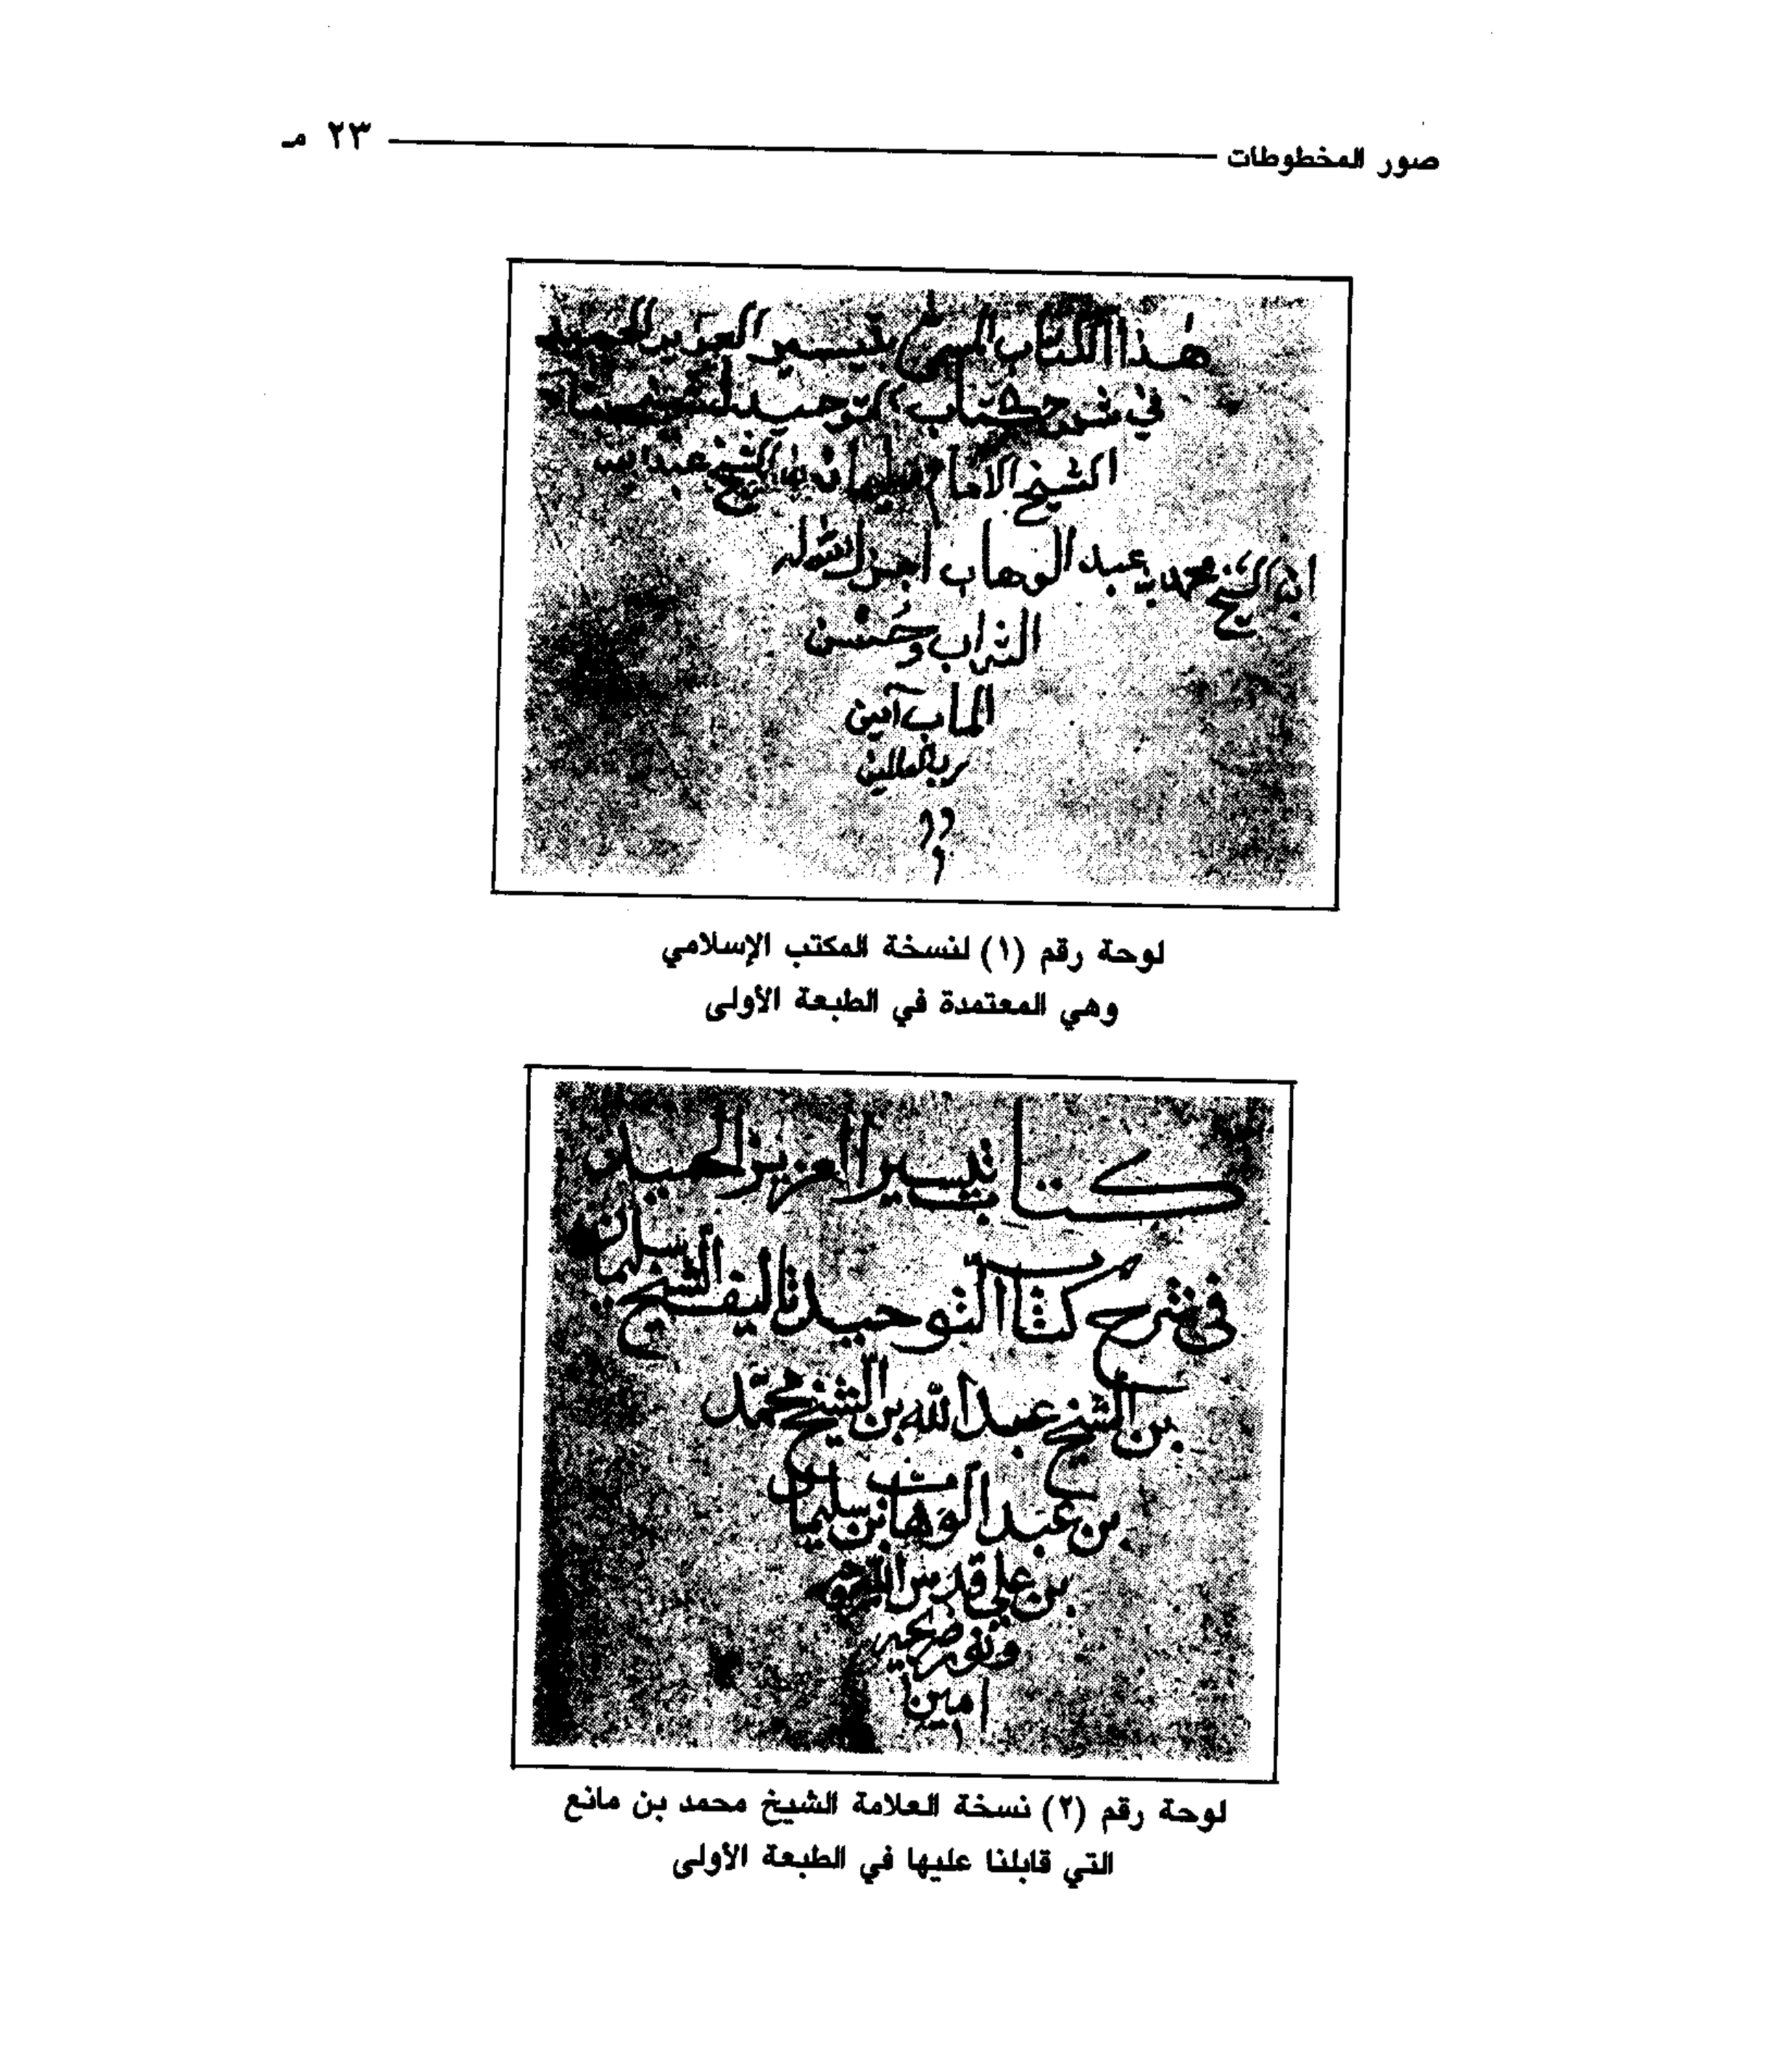 صور المخطوطات ٢٣ مـ
هذا الكتاب المسمى بتيسير العزيز الحميد
في شرح كتاب التوحيد
الشيخ الامام سليمان بن الشيخ عبد الله
ابن الشيخ محمد بن عبد الوهاب اجزل الله له
الثواب وحسن
الماب آمين
رب العالمين
لوحة رقم (١) لنسخة المكتب الإسلامي
وهي المعتمدة في الطبعة الأولى
كتاب تيسير العزيز الحميد
في شرح كتاب التوحيد تاليف الشيخ سليمان
بن الشيخ عبد الله بن الشيخ محمد
بن عبد الوهاب بن سليمان
بن علي قدس الله روحه
ونور ضريحه
امين
لوحة رقم (٢) نسخة العلامة الشيخ محمد بن مانع
التي قابلنا عليها في الطبعة الأولى